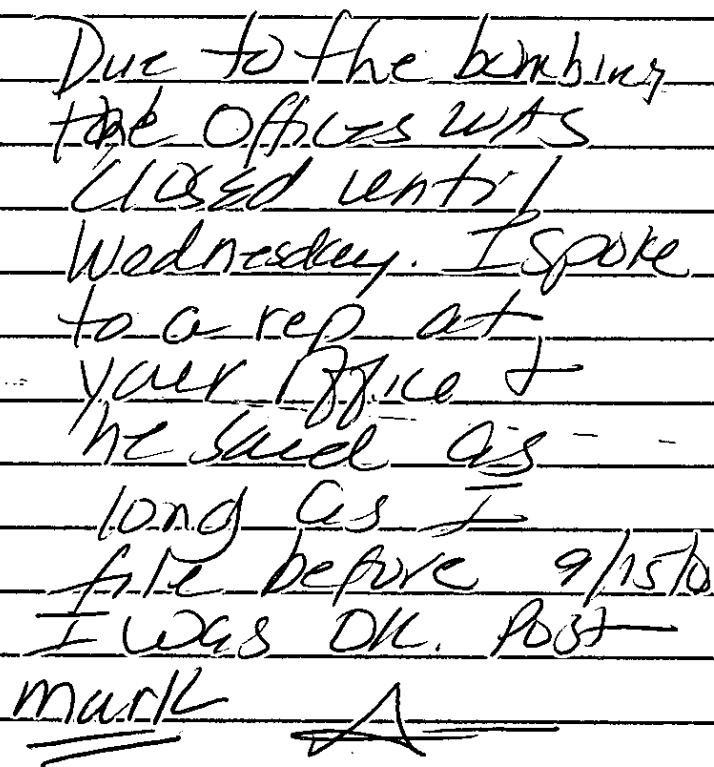 Due to the bombing
the Offices WAS
closed until
Wednesday. I spoke
to a rep at
your office &
he said as
long as I
file before 9/15/0
I was OK. Post
mark